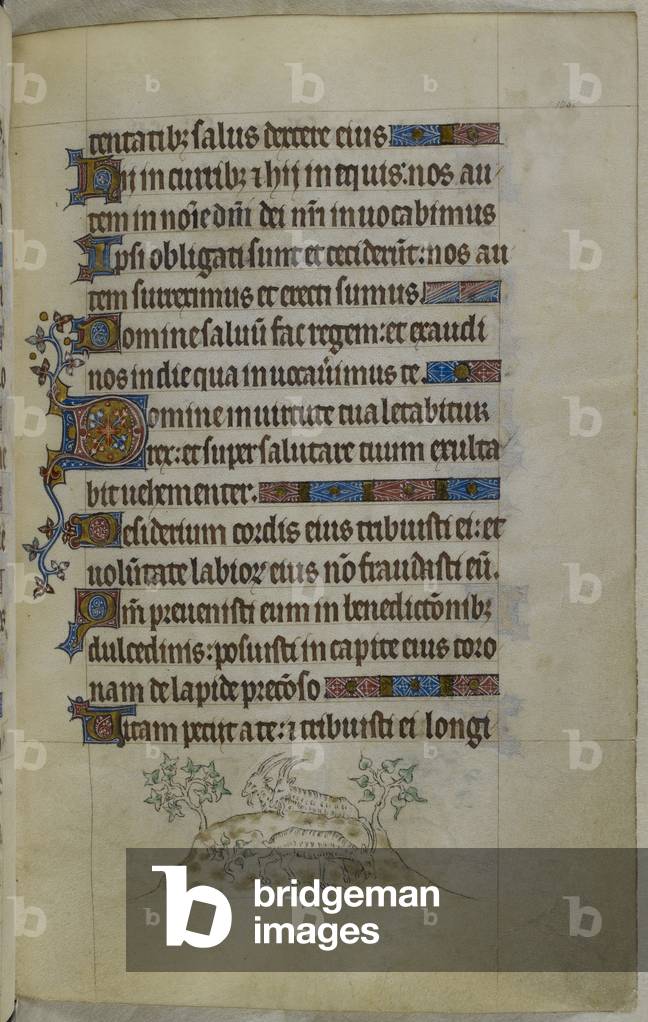 tentatibꝫ salus dextere eius
Hij in curribꝫ ⁊ hij in equis: nos au
tem in noı̅e dn̄i dei nr̄i inuocabimus
Ipsi obligati sunt et ceciderūt: nos au
tem surreximus et erecti sumus.
Domine saluū fac regem: et exaudi
nos in die qua inuocau̇imus te.
Domine in uirtute tua letabitur
rex: et super salutare tuum exulta
bit uehementer.
Desiderium cordis eius tribuisti ei: et
uolūtate labioꝝ eius nō fraudasti eū.
Qm̄ preuenisti eum in benedictōnibꝫ
dulcedinis: posuisti in capite eius coro
nam de lapide precōso
Vitam petiit a te: ⁊ tribuisti ei longi
bridgeman
images